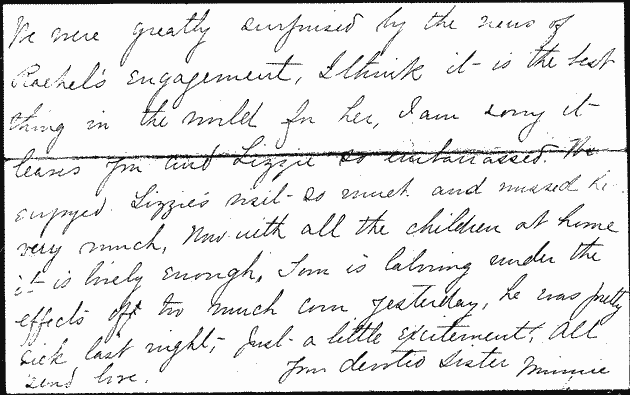 We were greatly surprised by the news of
Rachel's engagement, I think it is the best
thing in the world for her, I am sorry it
leaves you and Lizzie so embarrassed. We
enjoyed Lizzie's visit so much and missed her
very much, Now with all the children at home
it is lively enough, Tom is laboring under the
effects of too much corn yesterday, he was pretty
sick last night, Just a little excitement. All
send love. Your devoted Sister Minnie